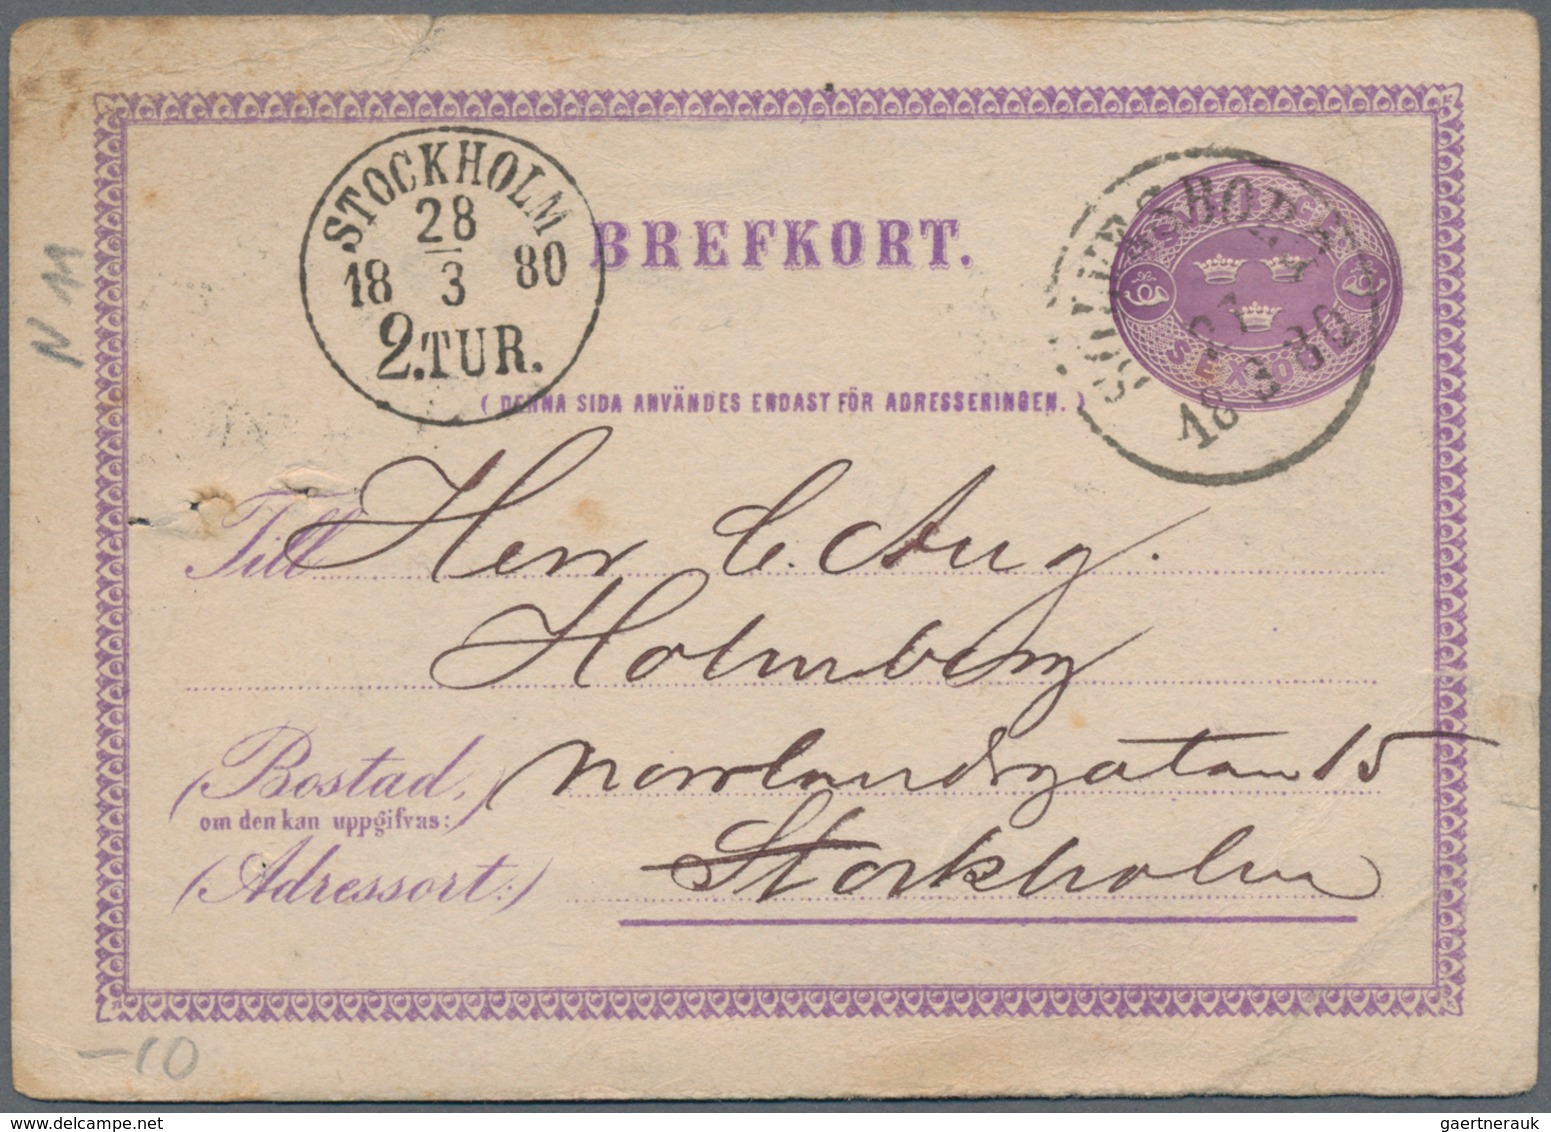 STOCKHOLM
28
18 3 80
2.TUR.
BREFKORT.
SVERIGE
SEX ÖRE
18 3 80
(DENNA SIDA ANVÄNDES ENDAST FÖR ADRESSERINGEN.)
N 11
Till Herr C. Aug.
Holmberg
(Bostad, Norrlandsgatan 15
om den kan uppgifvas:)
(Adressort:) Stockholm
-10
gaertnerauk@delcampe.net